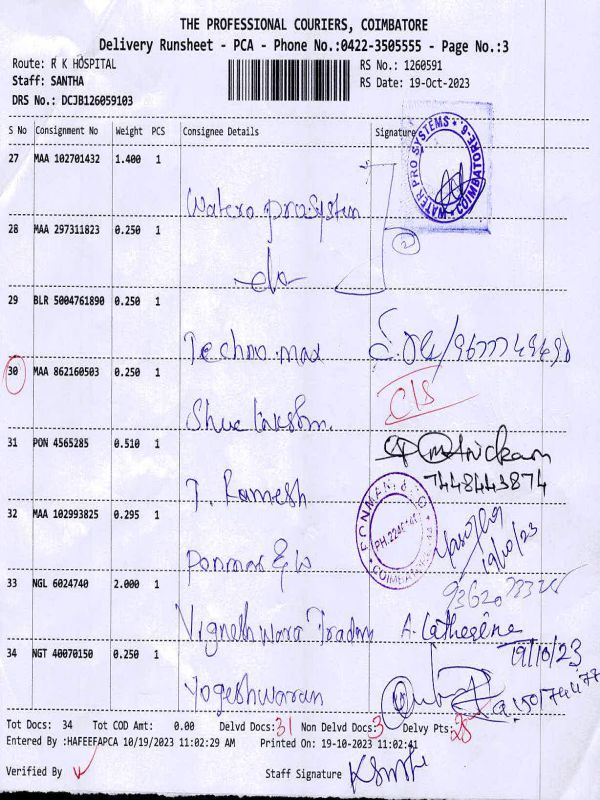 THE PROFESSIONAL COURIERS, COIMBATORE
Delivery Runsheet - PCA - Phone No.:0422-3505555 - Page No.:3
Route: R K HOSPITAL RS No.: 1260591
Staff: SANTHA RS Date: 19-Oct-2023
DRS No.: DCJB126059103
S No Consignment No Weight PCS Consignee Details Signature
WATER PRO SYSTEMS COIMBATORE-6
27 MAA 102701432 1.400 1
Watero prosystem
28 MAA 297311823 0.250 1
2
do
29 BLR 5004761890 0.250 1
Techno max
30 MAA 862160503 0.250 1
C/S
31 PON 4565285 0.510 1
7448443874
T. Ramesh
32 MAA 102993825 0.295 1
PONMANI & CO COIMBATORE
19/10/23
33 NGL 6024740 2.000 1
Vigneshwara Tradm A. Cathegêne
34 NGT 40070150 0.250 1
19/10/23
Yogeshwaran
Tot Docs: 34 Tot COD Amt: 0.00 Delvd Docs: 31 Non Delvd Docs: 3 Delvy Pts: 28
Entered By :HAFEEFAPCA 10/19/2023 11:02:29 AM Printed On: 19-10-2023 11:02:41
Verified By Staff Signature